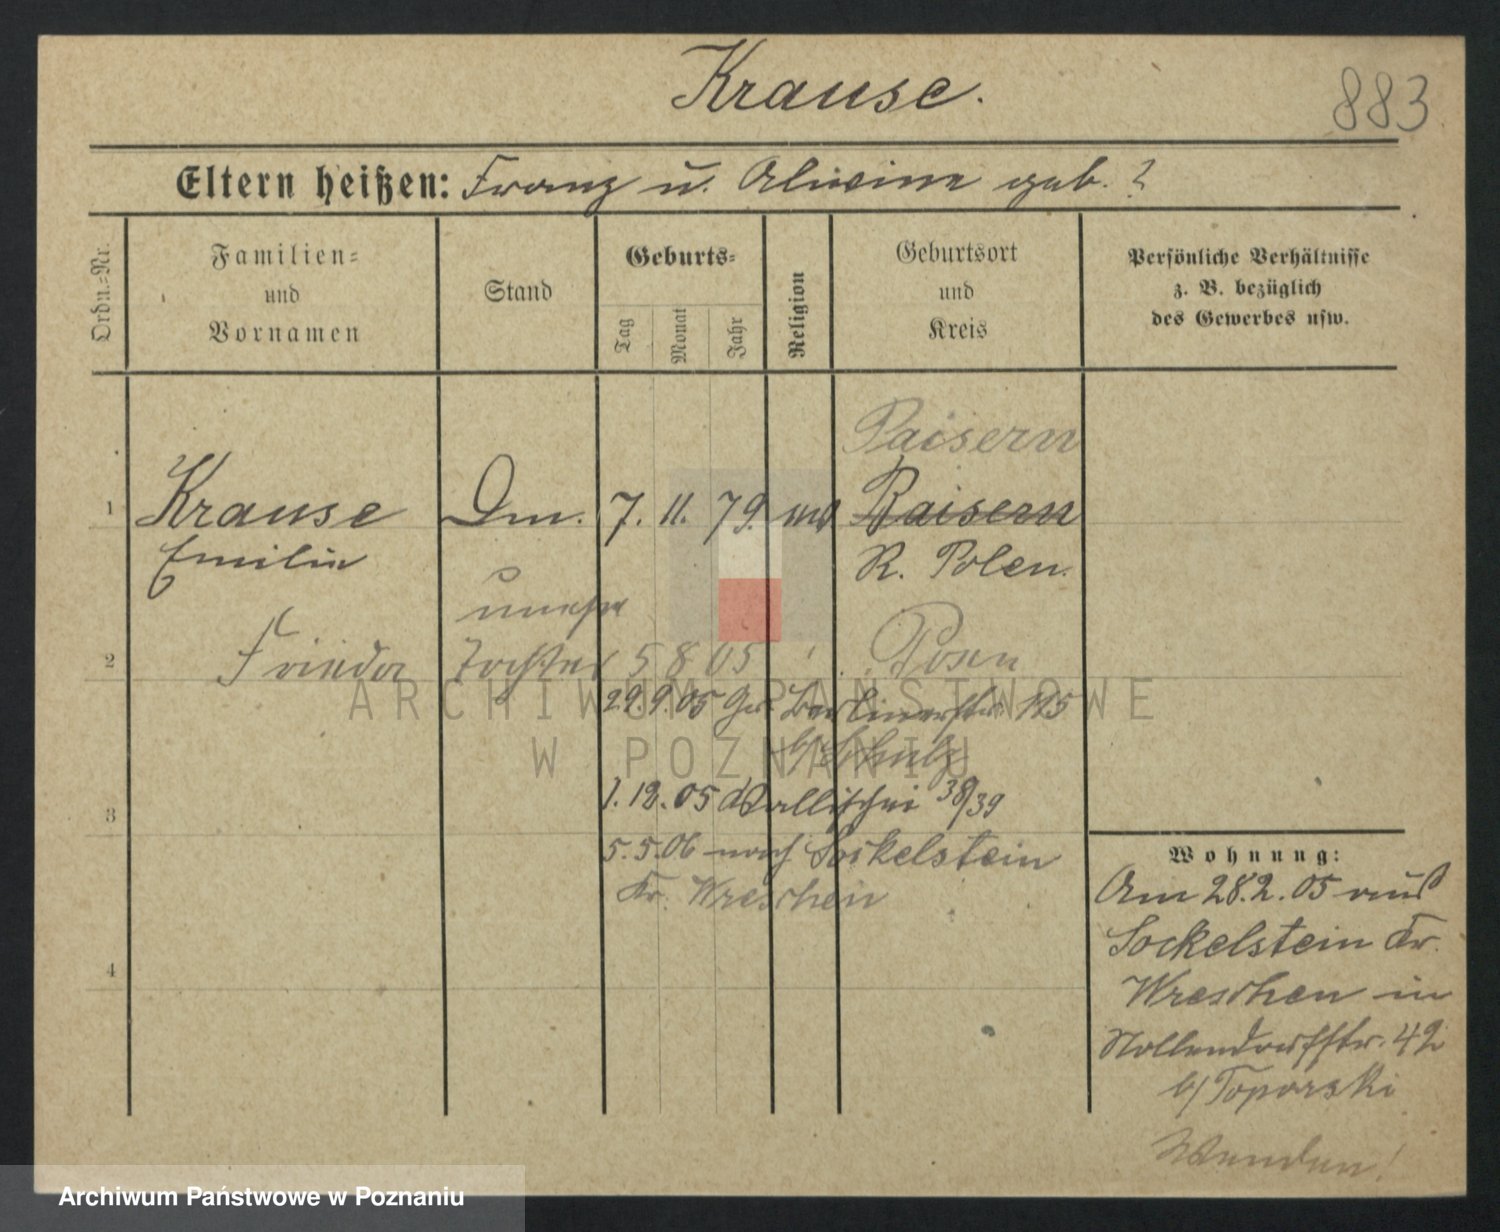 Krause.
883
Eltern heißen: Franz u. Alwine geb. ?
Ordn.-Nr.
Familien- und Vornamen
Stand
Geburts-
Tag
Monat
Jahr
Religion
Geburtsort und Kreis
Persönliche Verhältnisse z. B. bezüglich des Gewerbes usw.
Paisern
1 Krause Dm. 7. 11. 79. Raisern
Emilie R. Polen.
unehe
2 Frieda Tochter 5 8 05 Posen
29.9.05 Berlinerstr. 115
b/ Schulz
3
1. 12. 05 Wallischei 38/39
5. 5. 06 nach Sockelstein
Kr. Wreschen
4
Wohnung:
Am 28.2.05 aus
Sockelstein Kr.
Wreschen in
Nollendorfstr. 42
b/ Toporski
Wenden!
ARCHIWUM PAŃSTWOWE
W POZNANIU
Archiwum Państwowe w Poznaniu